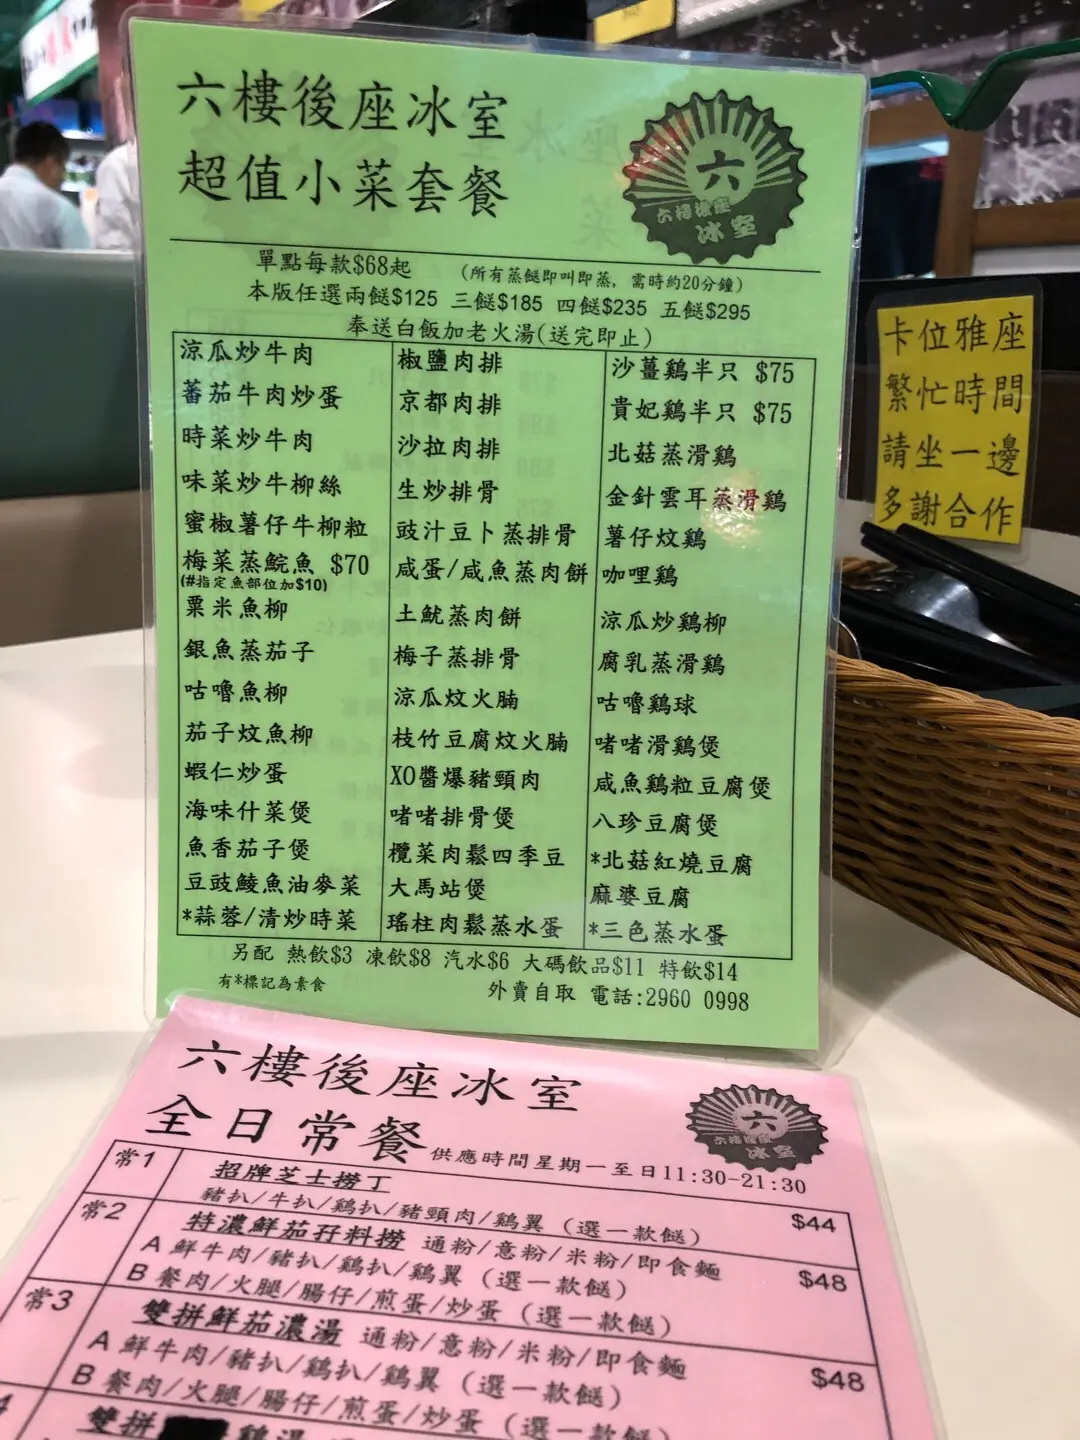 六樓後座冰室
超值小菜套餐
六
六樓後座
冰室
單點每款$68起 (所有蒸餸即叫即蒸, 需時約20分鐘)
本版任選兩餸$125 三餸$185 四餸$235 五餸$295
奉送白飯加老火湯(送完即止)
涼瓜炒牛肉
蕃茄牛肉炒蛋
時菜炒牛肉
味菜炒牛柳絲
蜜椒薯仔牛柳粒
梅菜蒸鯇魚 $70
(#指定魚部位加$10)
粟米魚柳
銀魚蒸茄子
咕嚕魚柳
茄子炆魚柳
蝦仁炒蛋
海味什菜煲
魚香茄子煲
豆豉鯪魚油麥菜
*蒜蓉/清炒時菜
椒鹽肉排
京都肉排
沙拉肉排
生炒排骨
豉汁豆卜蒸排骨
咸蛋/咸魚蒸肉餅
土魷蒸肉餅
梅子蒸排骨
涼瓜炆火腩
枝竹豆腐炆火腩
XO醬爆豬頸肉
啫啫排骨煲
欖菜肉鬆四季豆
大馬站煲
瑤柱肉鬆蒸水蛋
沙薑鷄半只 $75
貴妃鷄半只 $75
北菇蒸滑鷄
金針雲耳蒸滑鷄
薯仔炆鷄
咖哩鷄
涼瓜炒鷄柳
腐乳蒸滑鷄
咕嚕鷄球
啫啫滑鷄煲
咸魚鷄粒豆腐煲
八珍豆腐煲
*北菇紅燒豆腐
麻婆豆腐
*三色蒸水蛋
另配 熱飲$3 凍飲$8 汽水$6 大碼飲品$11 特飲$14
有*標記為素食
外賣自取 電話:2960 0998
卡位雅座
繁忙時間
請坐一邊
多謝合作
六樓後座冰室
全日常餐 供應時間星期一至日11:30-21:30
六
六樓後座
冰室
常1 招牌芝士撈丁
豬扒/牛扒/鷄扒/豬頸肉/鷄翼 (選一款餸) $44
常2 特濃鮮茄孖料撈 通粉/意粉/米粉/即食麵
A 鮮牛肉/豬扒/鷄扒/鷄翼 (選一款餸) $48
B 餐肉/火腿/腸仔/煎蛋/炒蛋 (選一款餸)
常3 雙拼鮮茄濃湯 通粉/意粉/米粉/即食麵
A 鮮牛肉/豬扒/鷄扒/鷄翼 (選一款餸) $48
B 餐肉/火腿/腸仔/煎蛋/炒蛋 (選一款餸)
4 雙拼 鷄湯